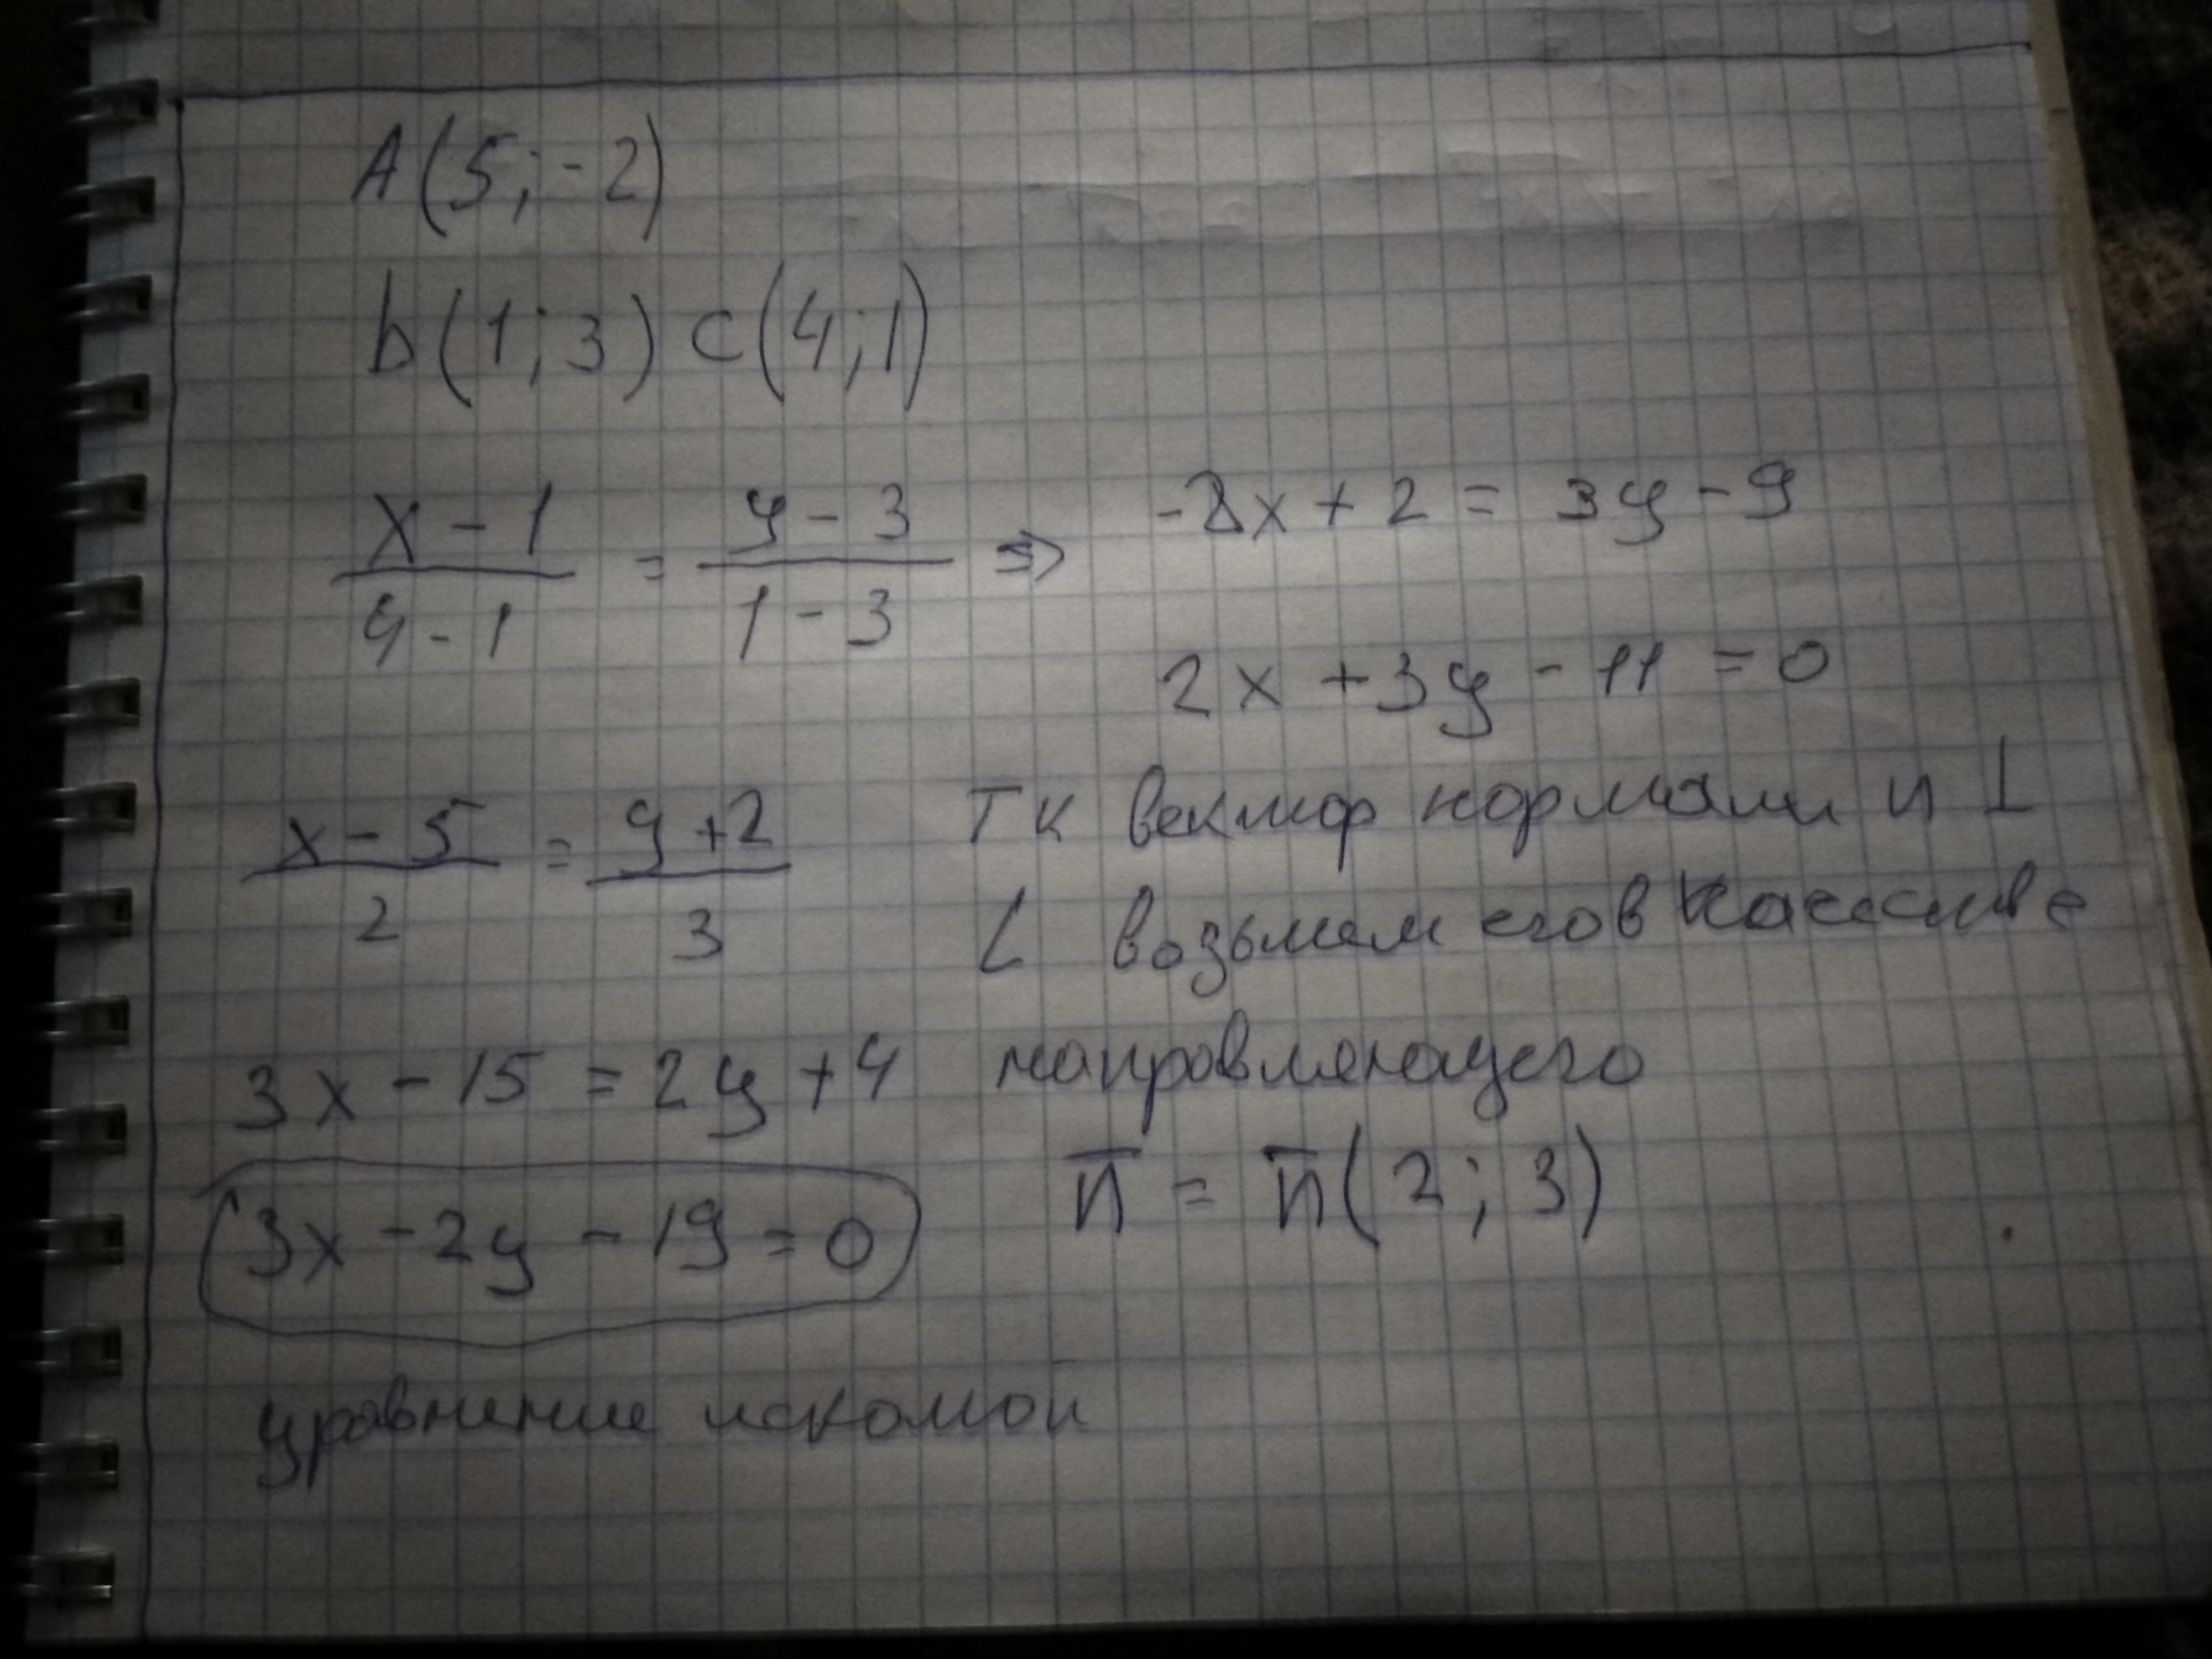 A(5;-2)
b(1;3) c(4;1)
x-1/4-1 = y-3/1-3 ⇒ -2x+2=3y-9
2x+3y-11=0
x-5/2 = y+2/3
3x-15=2y+4
3x-2y-19=0
уравнение искомой
ТК вектор нормали n ⊥
L возьмем его в качестве
направляющего
n̅ = n̅(2;3)